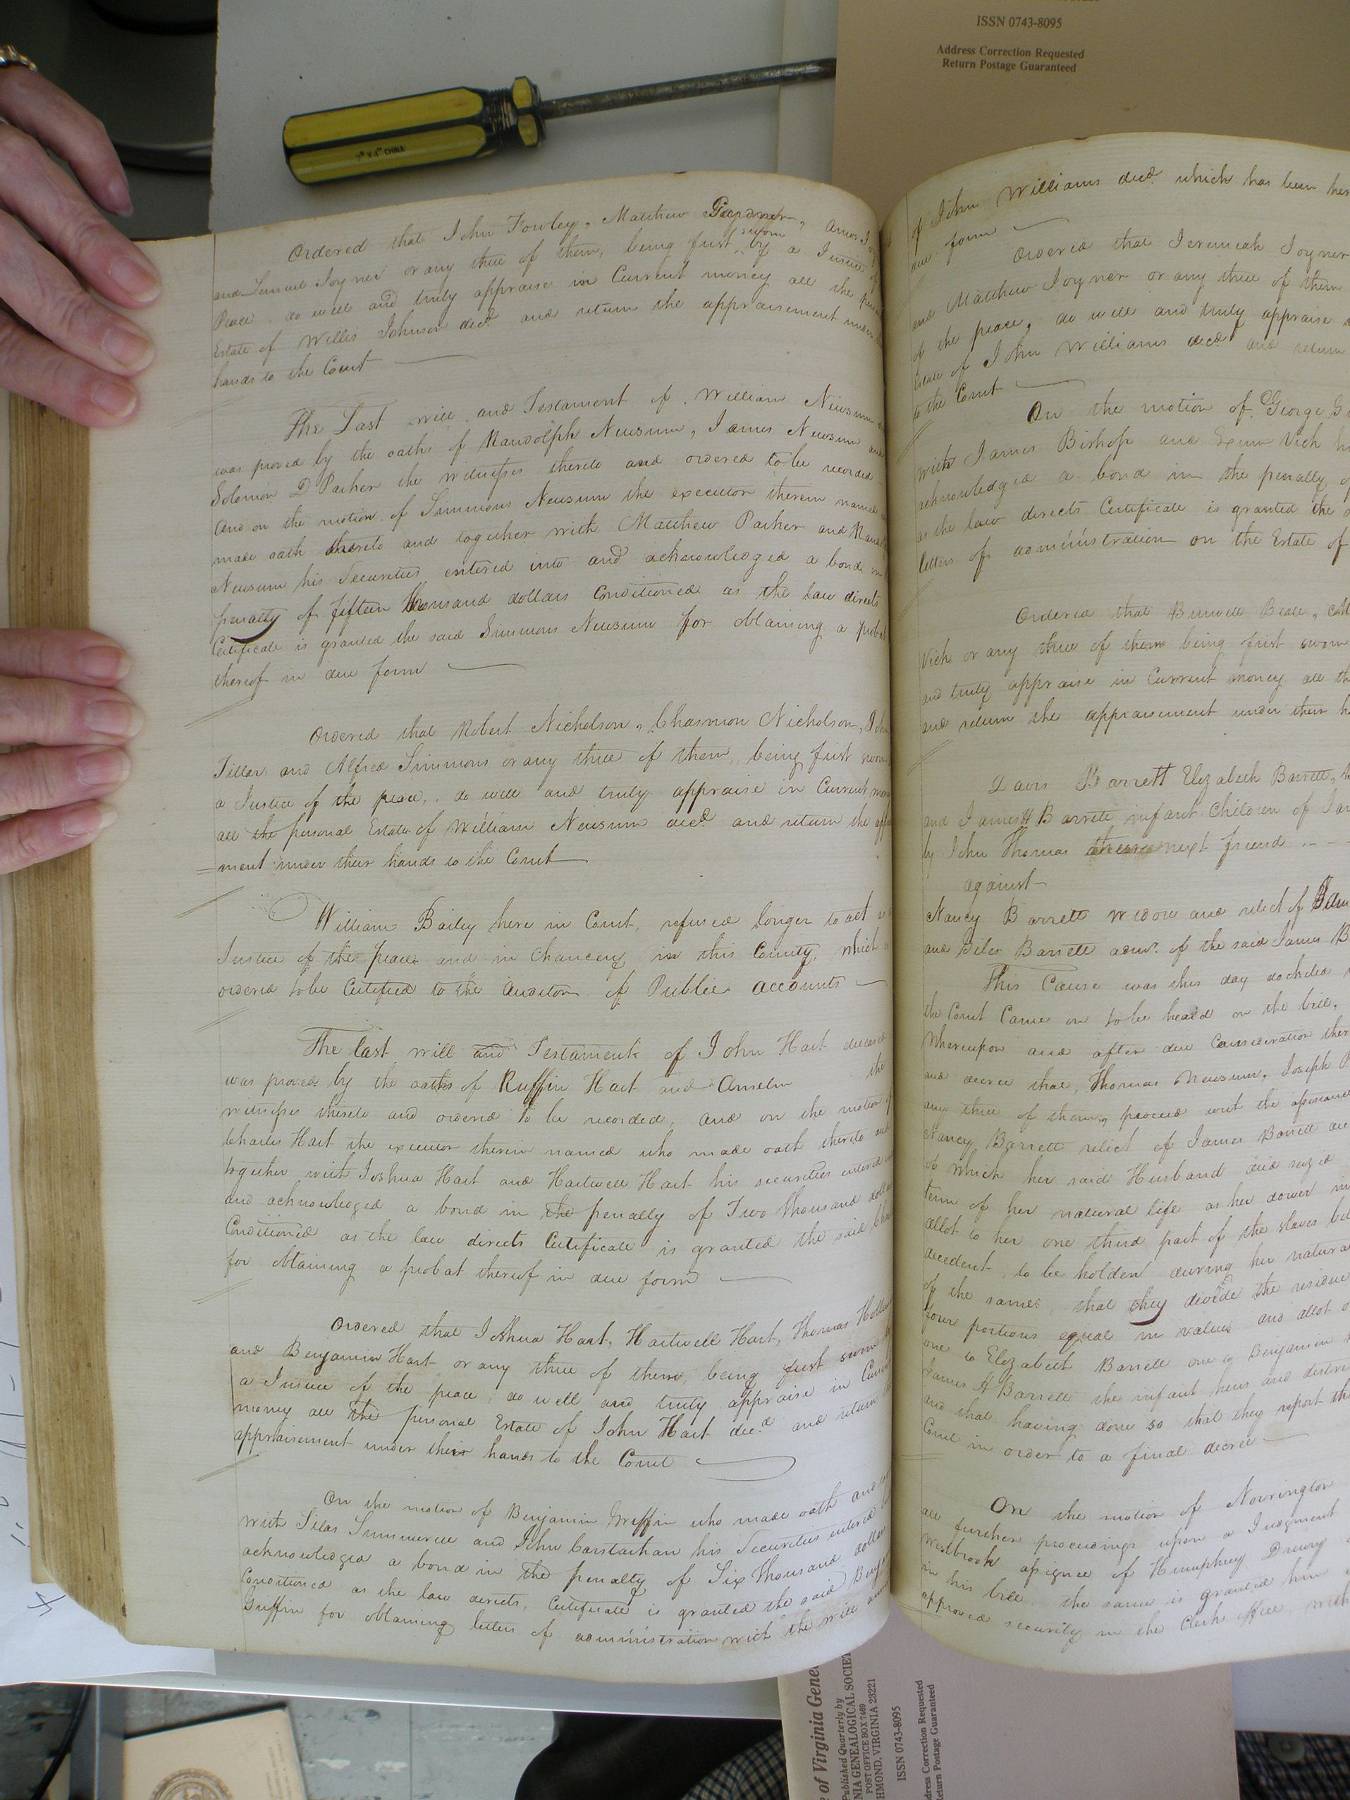 ISSN 0743-8095
Address Correction Requested
Return Postage Guaranteed
Ordered that John Fowley, Matthew Gardner, Amos
sworn
and Lemuel Joyner or any three of them, being first by a Justice of
Peace, do well and truly appraise in Current money all the
Estate of Willis Johnson decd. and return the appraisement under
hands to the Court
The Last will and Testament of William Newsum
was proved by the oaths of Randolph Newsum, James Newsum and
Solomon D Parker the witnesses thereto and ordered to be recorded
and on the motion of Simmons Newsum the executor therein named
made oath thereto and together with Matthew Parker and
Newsum his Securities entered into and acknowledged a bond in
penalty of fifteen thousand dollars Conditioned as the law directs
Certificate is granted the said Simmons Newsum for obtaining a probat
thereof in due form
Ordered that Robert Nicholson, Chasmon Nicholson, John
Tiller and Alfred Simmons or any three of them, being first sworn
a Justice of the peace, do well and truly appraise in Current
all the personal Estate of William Newsum decd. and return the
ment under their hands to the Court
William Bailey here in Court, refused longer to act
Justice of the peace and in Chancery in this County, which
ordered to be Certified to the Auditor of Public accounts
The last will and Testament of John Hart
was proved by the oaths of Ruffin Hart and Anselm the
witness thereto and ordered to be recorded, and on the motion
Charles Hart the executor therein named who made oath thereto and
together with Joshua Hart and Hartwell Hart his securities entered
and acknowledged a bond in the penalty of Two thousand
Conditioned as the law directs Certificate is granted the said
for obtaining a probat thereof in due form
Ordered that Joshua Hart, Hartwell Hart, Thomas
and Benjamin Hart or any three of them, being first sworn
a Justice of the peace, do well and truly appraise in
money all the personal Estate of John Hart decd. and return
appraisement under their hands to the Court
On the motion of Benjamin Griffin who made oath and
with Silas Summerell and John his Securities entered
acknowledged a bond in the penalty of Six thousand dollars
Conditioned as the law directs, Certificate is granted the said
Griffin for obtaining letters of administration with the will
of John Williams decd. which has been
due form
Ordered that Jeremiah Joyner
and Matthew Joyner or any three of them
of the peace, do well and truly appraise
Estate of John Williams decd. and return
to the Court
On the motion of George
with James Bishop and Exum Vick
acknowledged a bond in the penalty of
as the law directs Certificate is granted the
letters of administration on the Estate of
Ordered that Burwell Beale,
Vick or any three of them being first sworn
and truly appraise in Current money all
and return the appraisement under their
Davis Barrett Elizabeth Barrett,
and James H Barrett infant Children of
by John Thomas their next friend
against
Nancy Barrett widow and relict of
and Giles Barrett admr. of the said James
This Cause was this day docketed
the Court Came on to be heard on the bill,
Whereupon and after due Consideration
and decree that, Thomas Newsum, Joseph
any three of them, proceed
Nancy Barrett relict of James Barrett
of which her said Husband died seized
term of her natural life as her dower
allot to her one third part of the slaves
decedent, to be holden during her natural
of the same, that they divide the residue
four portions equal in value and allot
one to Elizabeth Barrett one to Benjamin
James H Barrett the infant heirs and
and that having done so that they report
Court in order to a final decree
On the motion of Norrington
all further proceedings upon a Judgment
Westbrook assignee of Humphrey Drewry
in his bill, the same is granted him
approved security in the Clerks office,
of Virginia
Published Quarterly by
GENEALOGICAL SOCIETY
POST OFFICE BOX 7469
VIRGINIA 23221
ISSN 0743-8095
Correction Requested
Postage Guaranteed